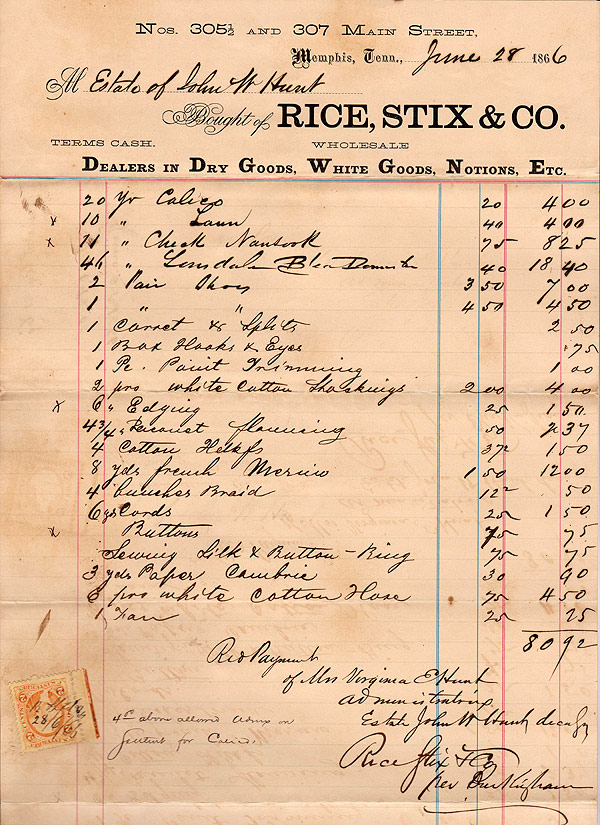 Nos. 305½ and 307 Main Street,
Memphis, Tenn., June 28 1866
M Estate of John W Hunt
Bought of RICE, STIX & CO.
TERMS CASH. WHOLESALE
Dealers in Dry Goods, White Goods, Notions, Etc.
20 Yr Calico 20 4 00
x 10 " Lawn 40 4 00
x 11 " Check Nansook 75 8 25
46 " Lonsdale Domestic 40 18 40
2 Pair Shoes 3 50 7 00
1 " " 4 50 4 50
1 Corset & Splits 2 50
1 Box Hooks & Eyes 75
1 Pc. Point Trimming 1 00
2 pro white Cotton Stockings 2 00 4 00
x 6 " Edging 25 1 50
4 3/4 " flouncing 50 2 37
4 Cotton Hdkfs 37 1 50
8 yds french Merino 1 50 12 00
4 bunches Braid 12 50
6 yds Cords 25 1 50
x Buttons 75 75
Sewing Silk & Button-Ring 75 75
3 yds Paper Cambric 30 90
6 pro white Cotton Hose 75 4 50
1 Fan 25 25
80 92
Recd Payment
of Mrs Virginia E Hunt
administratrix
Estate John W Hunt decd
4c above allowed Admx on
for Calico.
Rice Stix & Co
per Buckingham
28/6